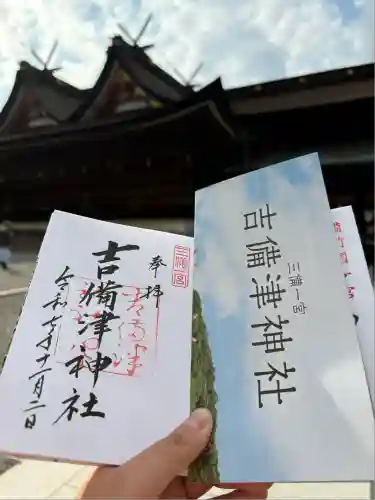 奉拝
三備一宮
吉備津神社
令和七年十二月二日
三備一宮
吉備津神社